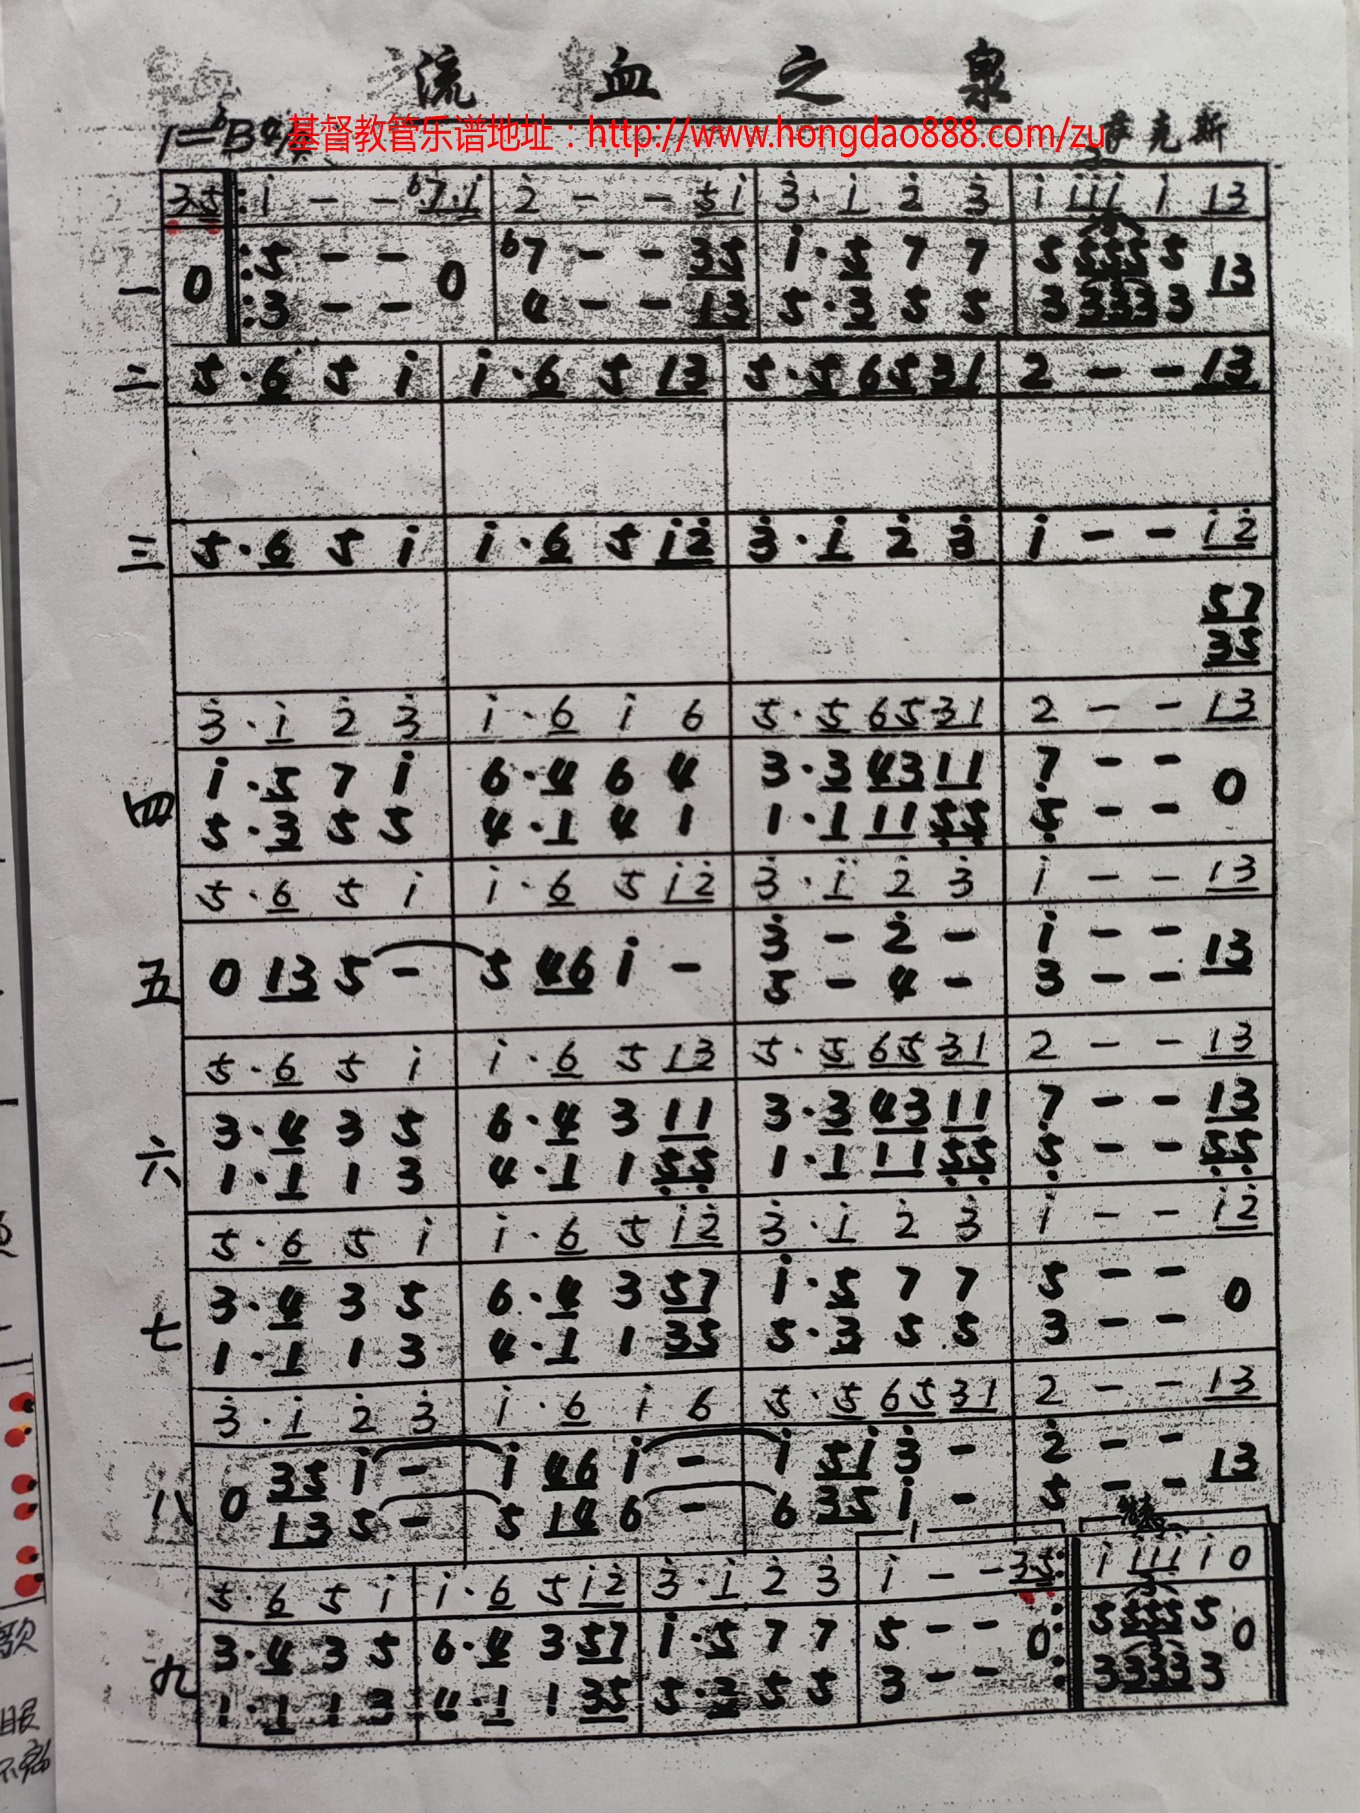 流 血 之 泉
1=♭B 4/4
基督教管乐谱地址：http://www.hongdao888.com/zu
萨克斯
35 ‖: i̇ - - ♭7·i̇ | 2̇ - - 5i̇ | 3̇·i̇ 2̇ 3̇ | i̇ i̇i̇i̇ i̇ 13
一 0 ‖: 5 - - 0 | ♭7 - - 35 | i̇·5 7 7 | 5 555 5 13
:3 - - | 4 - - 13 | 5·3 5 5 | 3 333 3
二 5·6 5 i̇ | i̇·6 5 13 | 5·5 65 31 | 2 - - 13
三 5·6 5 i̇ | i̇·6 5 i̇2̇ | 3̇·i̇ 2̇ 3̇ | i̇ - - i̇2̇
57
35
3̇·i̇ 2̇ 3̇ | i̇·6 i̇ 6 | 5·5 65 31 | 2 - - 13
四 i̇·5 7 i̇ | 6·4 6 4 | 3·3 43 11 | 7̣ - - 0
5·3 5 5 | 4·1 4 1 | 1·1 11 5̣5̣ | 5̣ - -
5·6 5 i̇ | i̇·6 5 i̇2̇ | 3̇·i̇ 2̇ 3̇ | i̇ - - 13
五 0 13 5 - | 5 46 i̇ - | 3̇ - 2̇ - | i̇ - - 13
5 - 4 - | 3 - -
5·6 5 i̇ | i̇·6 5 13 | 5·5 65 31 | 2 - - 13
六 3·4 3 5 | 6·4 3 11 | 3·3 43 11 | 7̣ - - 13
1·1 1 3 | 4·1 1 5̣5̣ | 1·1 11 5̣5̣ | 5̣ - - 5̣5̣
5·6 5 i̇ | i̇·6 5 i̇2̇ | 3̇·i̇ 2̇ 3̇ | i̇ - - i̇2̇
七 3·4 3 5 | 6·4 3 57 | i̇·5 7 7 | 5 - - 0
1·1 1 3 | 4·1 1 35 | 5·3 5 5 | 3 - -
3̇·i̇ 2̇ 3̇ | i̇·6 i̇ 6 | 5·5 65 31 | 2 - - 13
八 0 35 i̇ - | i̇ 46 i̇ - | i̇ 5i̇ 3̇ - | 2̇ - - 13
13 5 - | 5 14 6 - | 6 35 i̇ - | 5 - -
5·6 5 i̇ | i̇·6 5 i̇2̇ | 3̇·i̇ 2̇ 3̇ | i̇ - - 35 :‖ i̇ i̇i̇i̇ i̇ 0
九 3·4 3 5 | 6·4 3 57 | i̇·5 7 7 | 5 - - 0 :‖ 5 555 5 0
1·1 1 3 | 4·1 1 35 | 5·3 5 5 | 3 - - :‖ 3 333 3
歌
眼